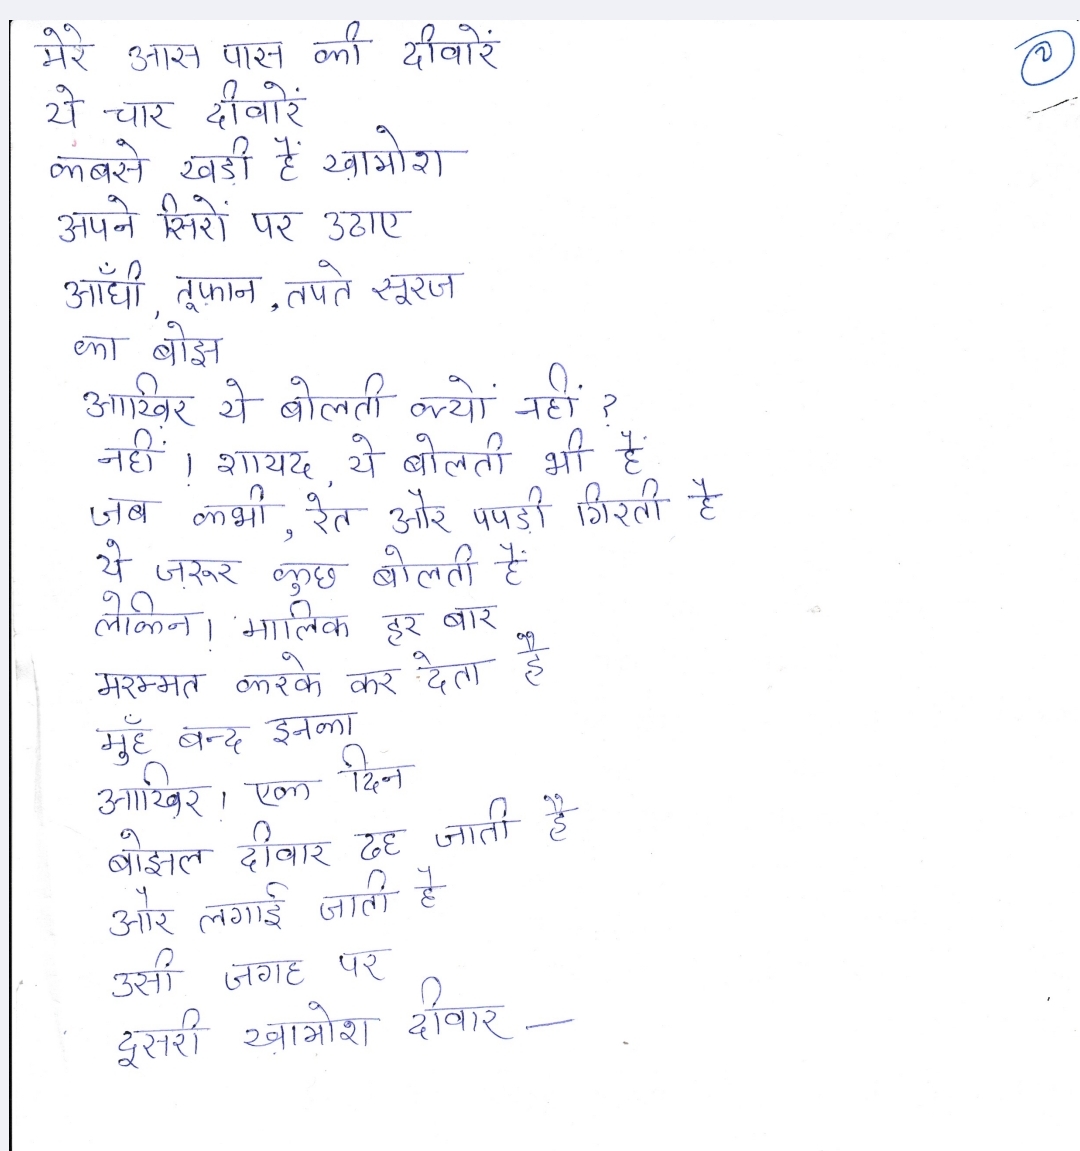 २
मेरे आस पास की दीवारें
ये चार दीवारें
कबसे खड़ी हैं ख़ामोश
अपने सिरों पर उठाए
आँधी, तूफ़ान, तपते सूरज
का बोझ
आख़िर ये बोलती क्यों नहीं ?
नहीं । शायद, ये बोलती भी हैं
जब कभी, रेत और पपड़ी गिरती है
ये ज़रूर कुछ बोलती हैं
लेकिन । मालिक हर बार
मरम्मत करके कर देता है
मुँह बन्द इनका
आख़िर । एक दिन
बोझल दीवार ढह जाती है
और लगाई जाती है
उसी जगह पर
दूसरी ख़ामोश दीवार —